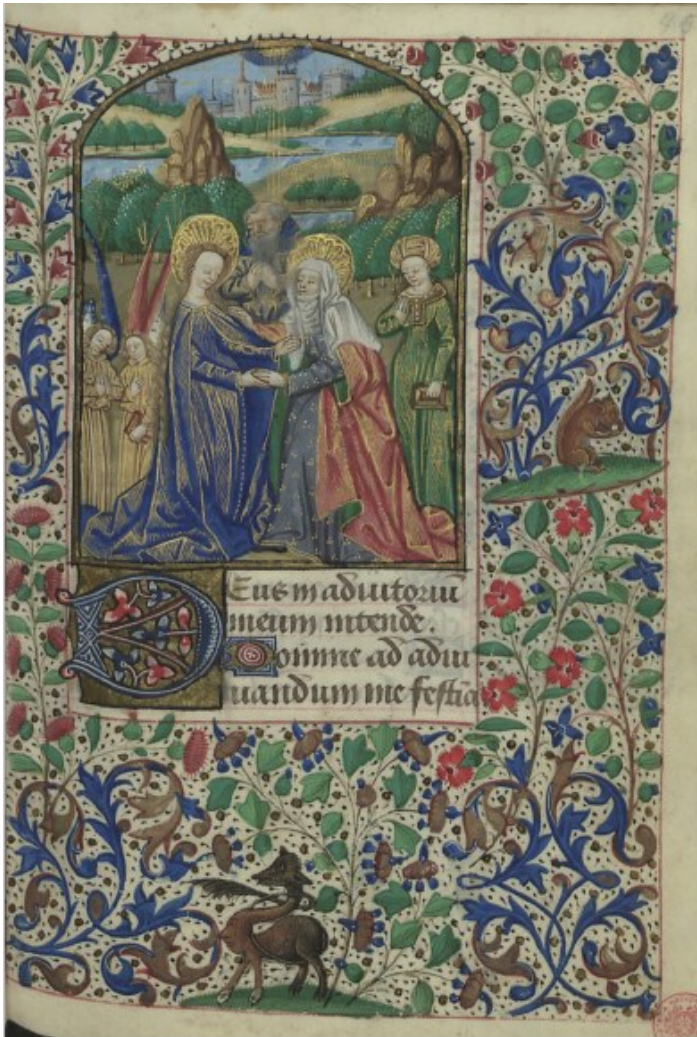 Deus in adiutoriū
meum intende.
Domine ad adiu
uandum me festia